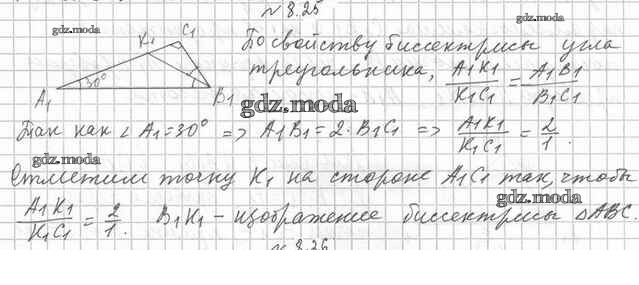 № 8.25
gdz.moda
gdz.moda
K1 C1
30°
A1 B1
По свойству биссектрисы угла
треугольника, A1K1/K1C1 = A1B1/B1C1
gdz.moda
gdz.moda
Так как ∠A1=30° => A1B1=2·B1C1 => A1K1/K1C1 = 2/1.
gdz.moda
gdz.moda
Отметим точку K1 на стороне A1C1 так, чтобы
A1K1/K1C1 = 2/1. B1K1 – изображение биссектрисы ΔABC.
№ 8.26